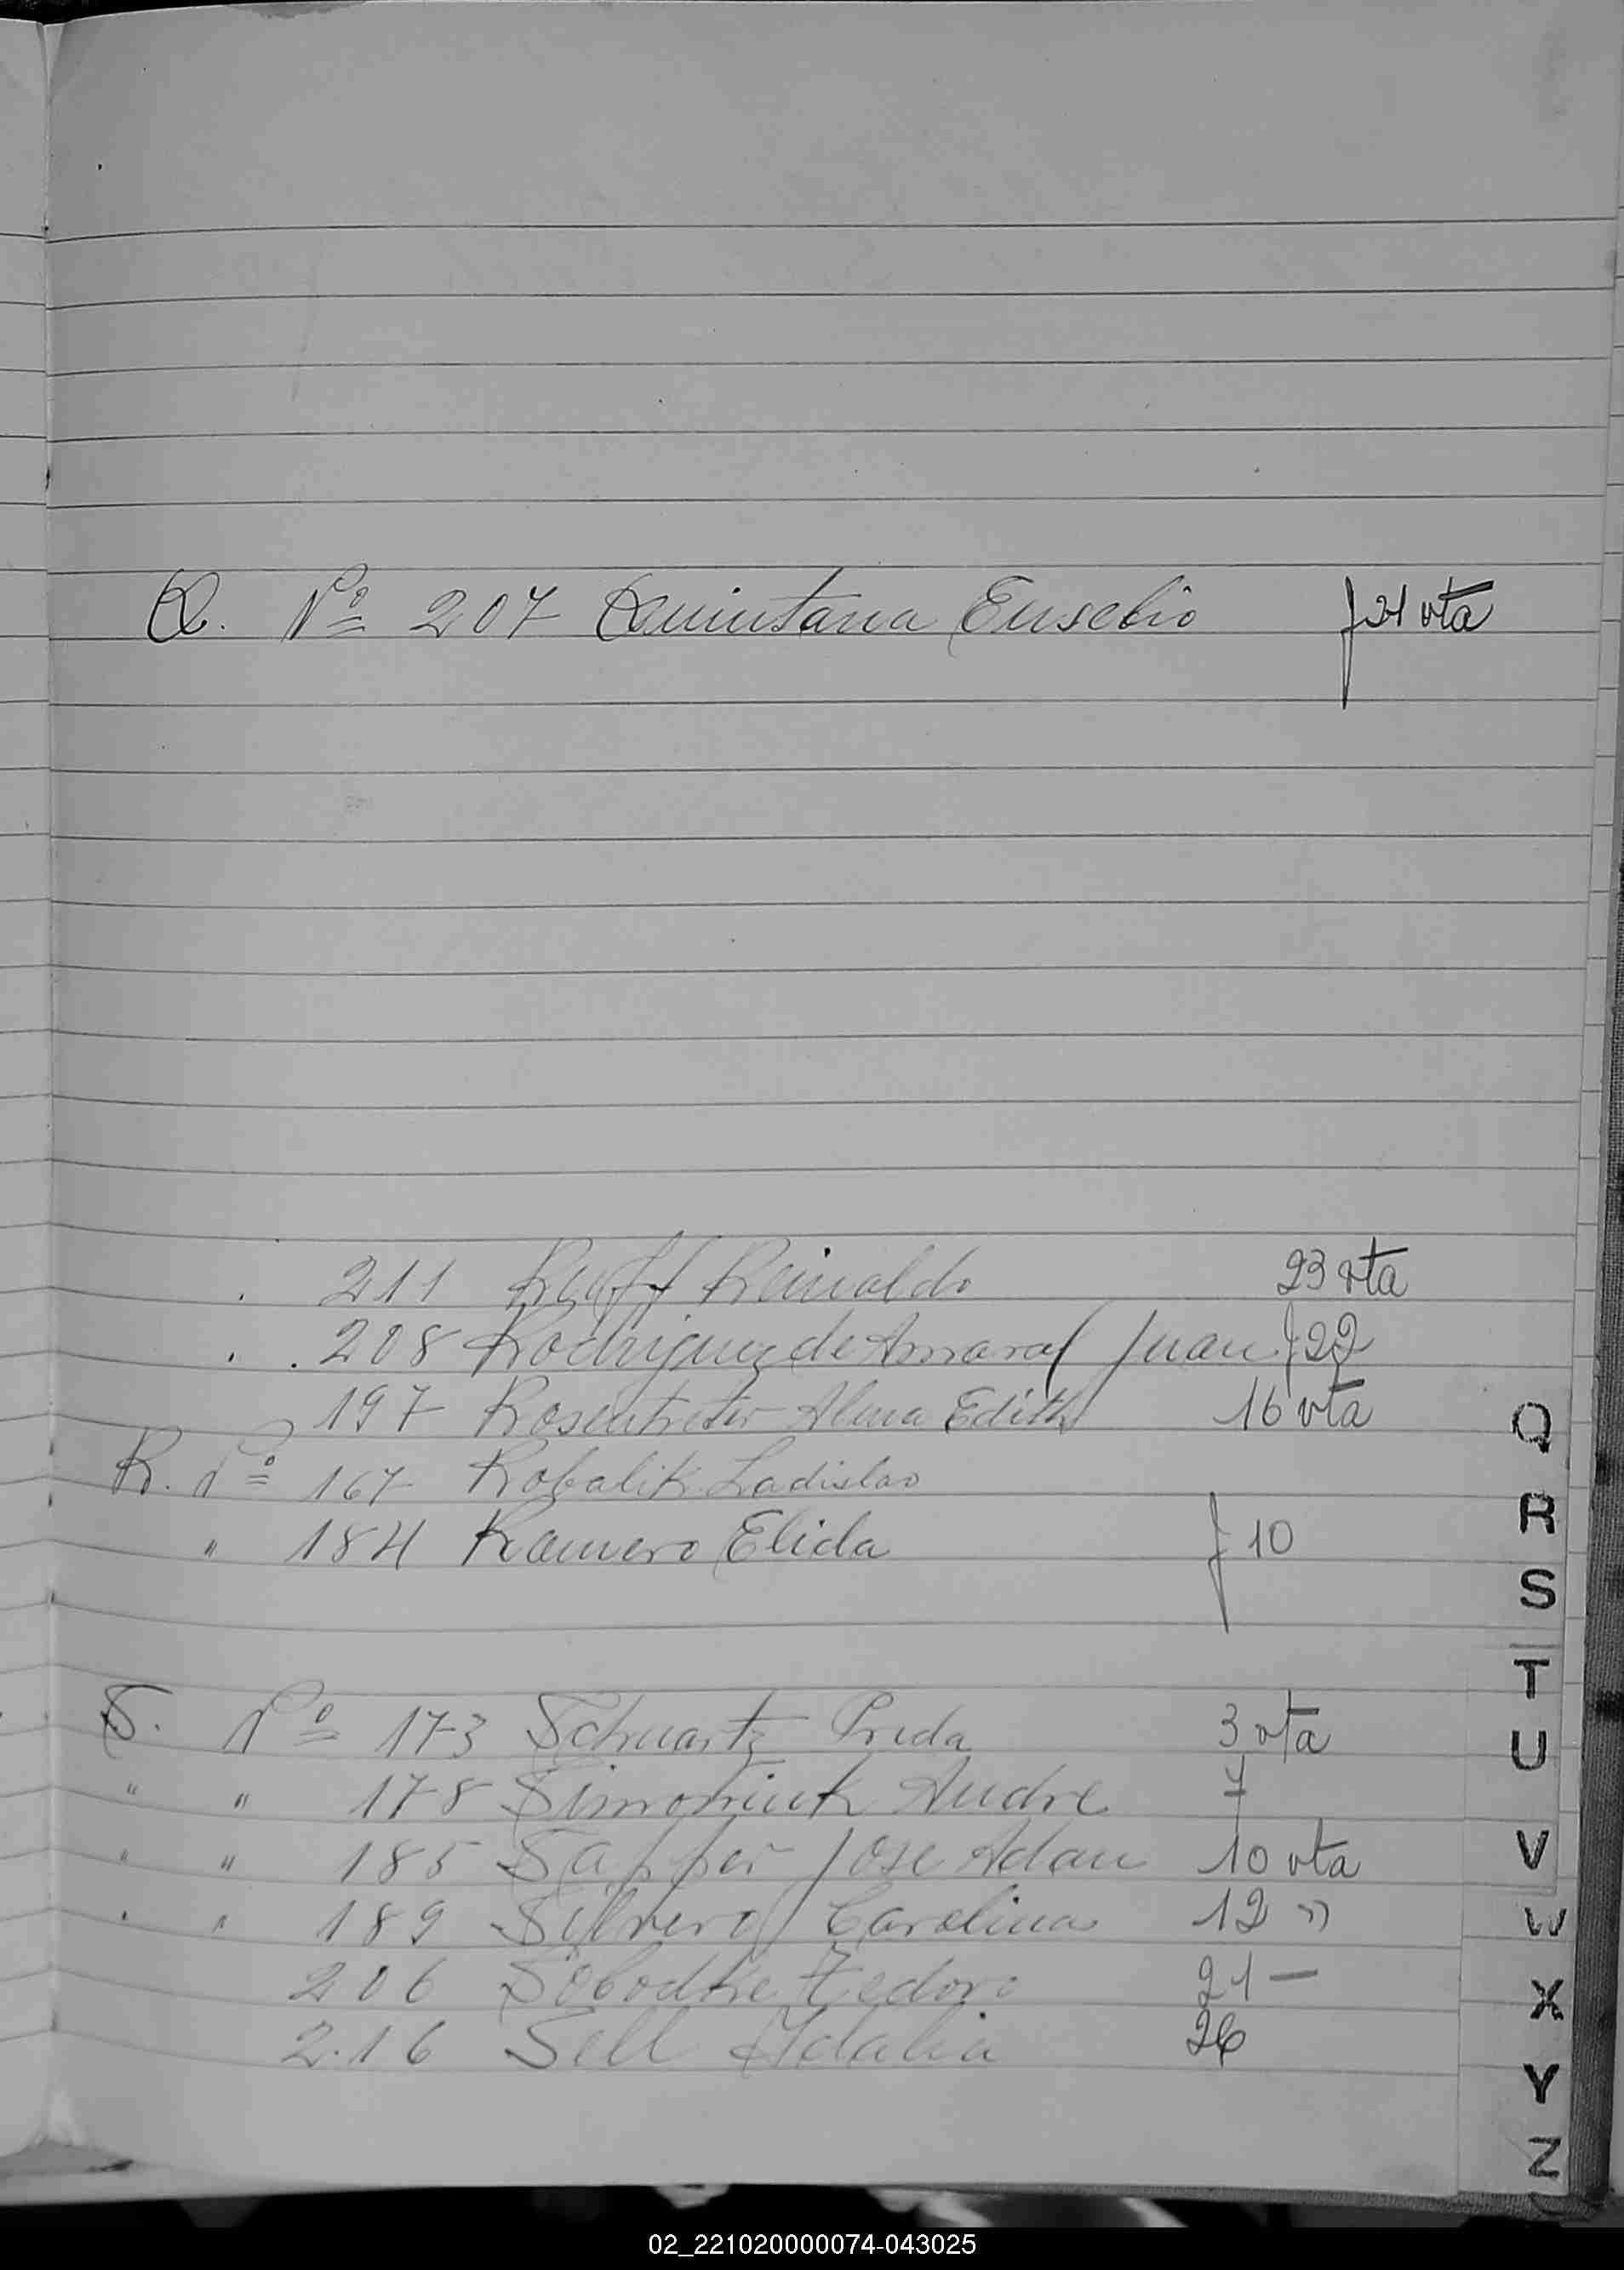 Q. Nº 207 Quintana Eusebio f 21 vta
211 Ruff Reinaldo 23 vta
208 Rodriguez de Amaral Juan f 22
197 Rosentreter Alma Edith 16 vta
R. Nº 167 Robalik Ladislao
" 184 Ramero Elida f 10
S. Nº 173 Schuartz Frida 3 vta
" " 178 Simoniuk Andre 7
" " 185 Sapper Jose Adan 10 vta
" " 189 Silvero Carolina 12 "
206 Sobodke Fedoro 21 —
2.16 Sell Idalia 26
Q
R
S
T
U
V
W
X
Y
Z
02_221020000074-043025